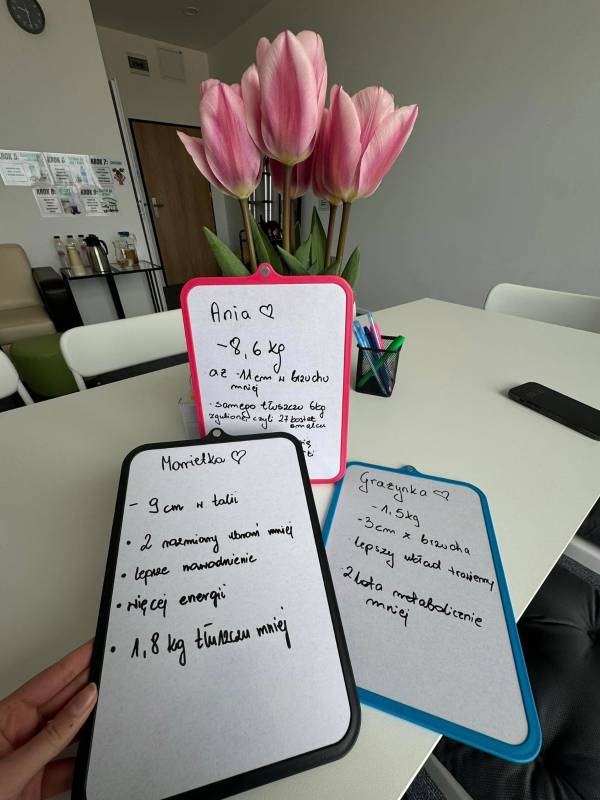 KROK 5:
KROK 6:
KROK 7:
KROK 8:
KROK 9:
Ania ♡
-8,6 kg
aż -11 cm w brzuchu
mniej
• samego tłuszczu 6kg
zgubione, czyli 27 kostek
smalcu
Marielka ♡
- 9 cm w talii
• 2 rozmiary ubrań mniej
• lepsze nawodnienie
• więcej energii
• 1,8 kg tłuszczu mniej
Grażynka ♡
-1,5 kg
-3cm z brzucha
lepszy układ trawienny
2 lata metabolicznie
mniej